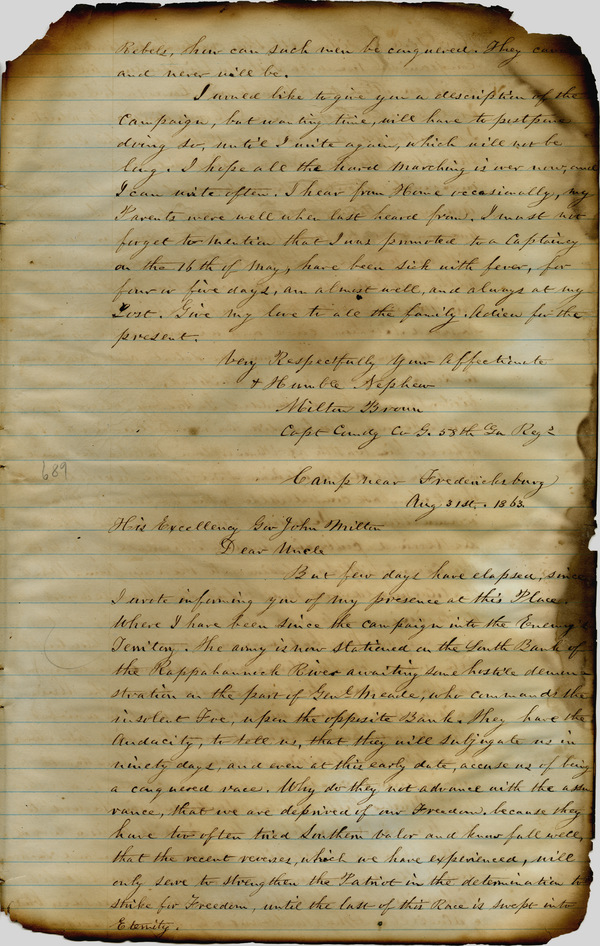 Rebels, how can such men be conquered. They can
and never will be.
I would like to give you a description of the
Campaign, but wanting time, will have to postpone
doing so, until I write again, which will not be
long. I hope all the hard marching is over now, and
I can write often. I hear from Home occasionally, my
Parents were well when last heard from. I must not
forget to mention that I was promoted to a Captaincy
on the 16th of May, have been sick with fever, for
four or five days, am almost well, and always at my
Post. Give my love to all the family. Adieu for the
present.
Very Respectfully Your Affectionate
& Humble Nephew
Milton Brown
Capt Comdg Co G. 58th Ga Regt
689
Camp near Fredericksburg
Aug 31st. 1863.
His Excellency Gov John Milton
Dear Uncle
But few days have elapsed, since
I wrote informing you of my presence at this Place.
Where I have been since the campaign into the Enemy's
Territory. The army is now stationed on the South Bank of
the Rappahannock River awaiting some hostile demon-
stration on the part of Genl Meade, who commands the
insolent Foe, upon the opposite Bank. They have the
Audacity, to tell us, that they will subjugate us in
ninety days, and even at this early date, accuse us of being
a conquered race. Why do they not advance with the assu
rance, that we are deprived of our Freedom. because they
have too often tried Southern valor and know full well,
that the recent reverses, which we have experienced, will
only serve to strengthen the Patriot in the determination to
strike for Freedom, until the last of this Race is swept into
Eternity.